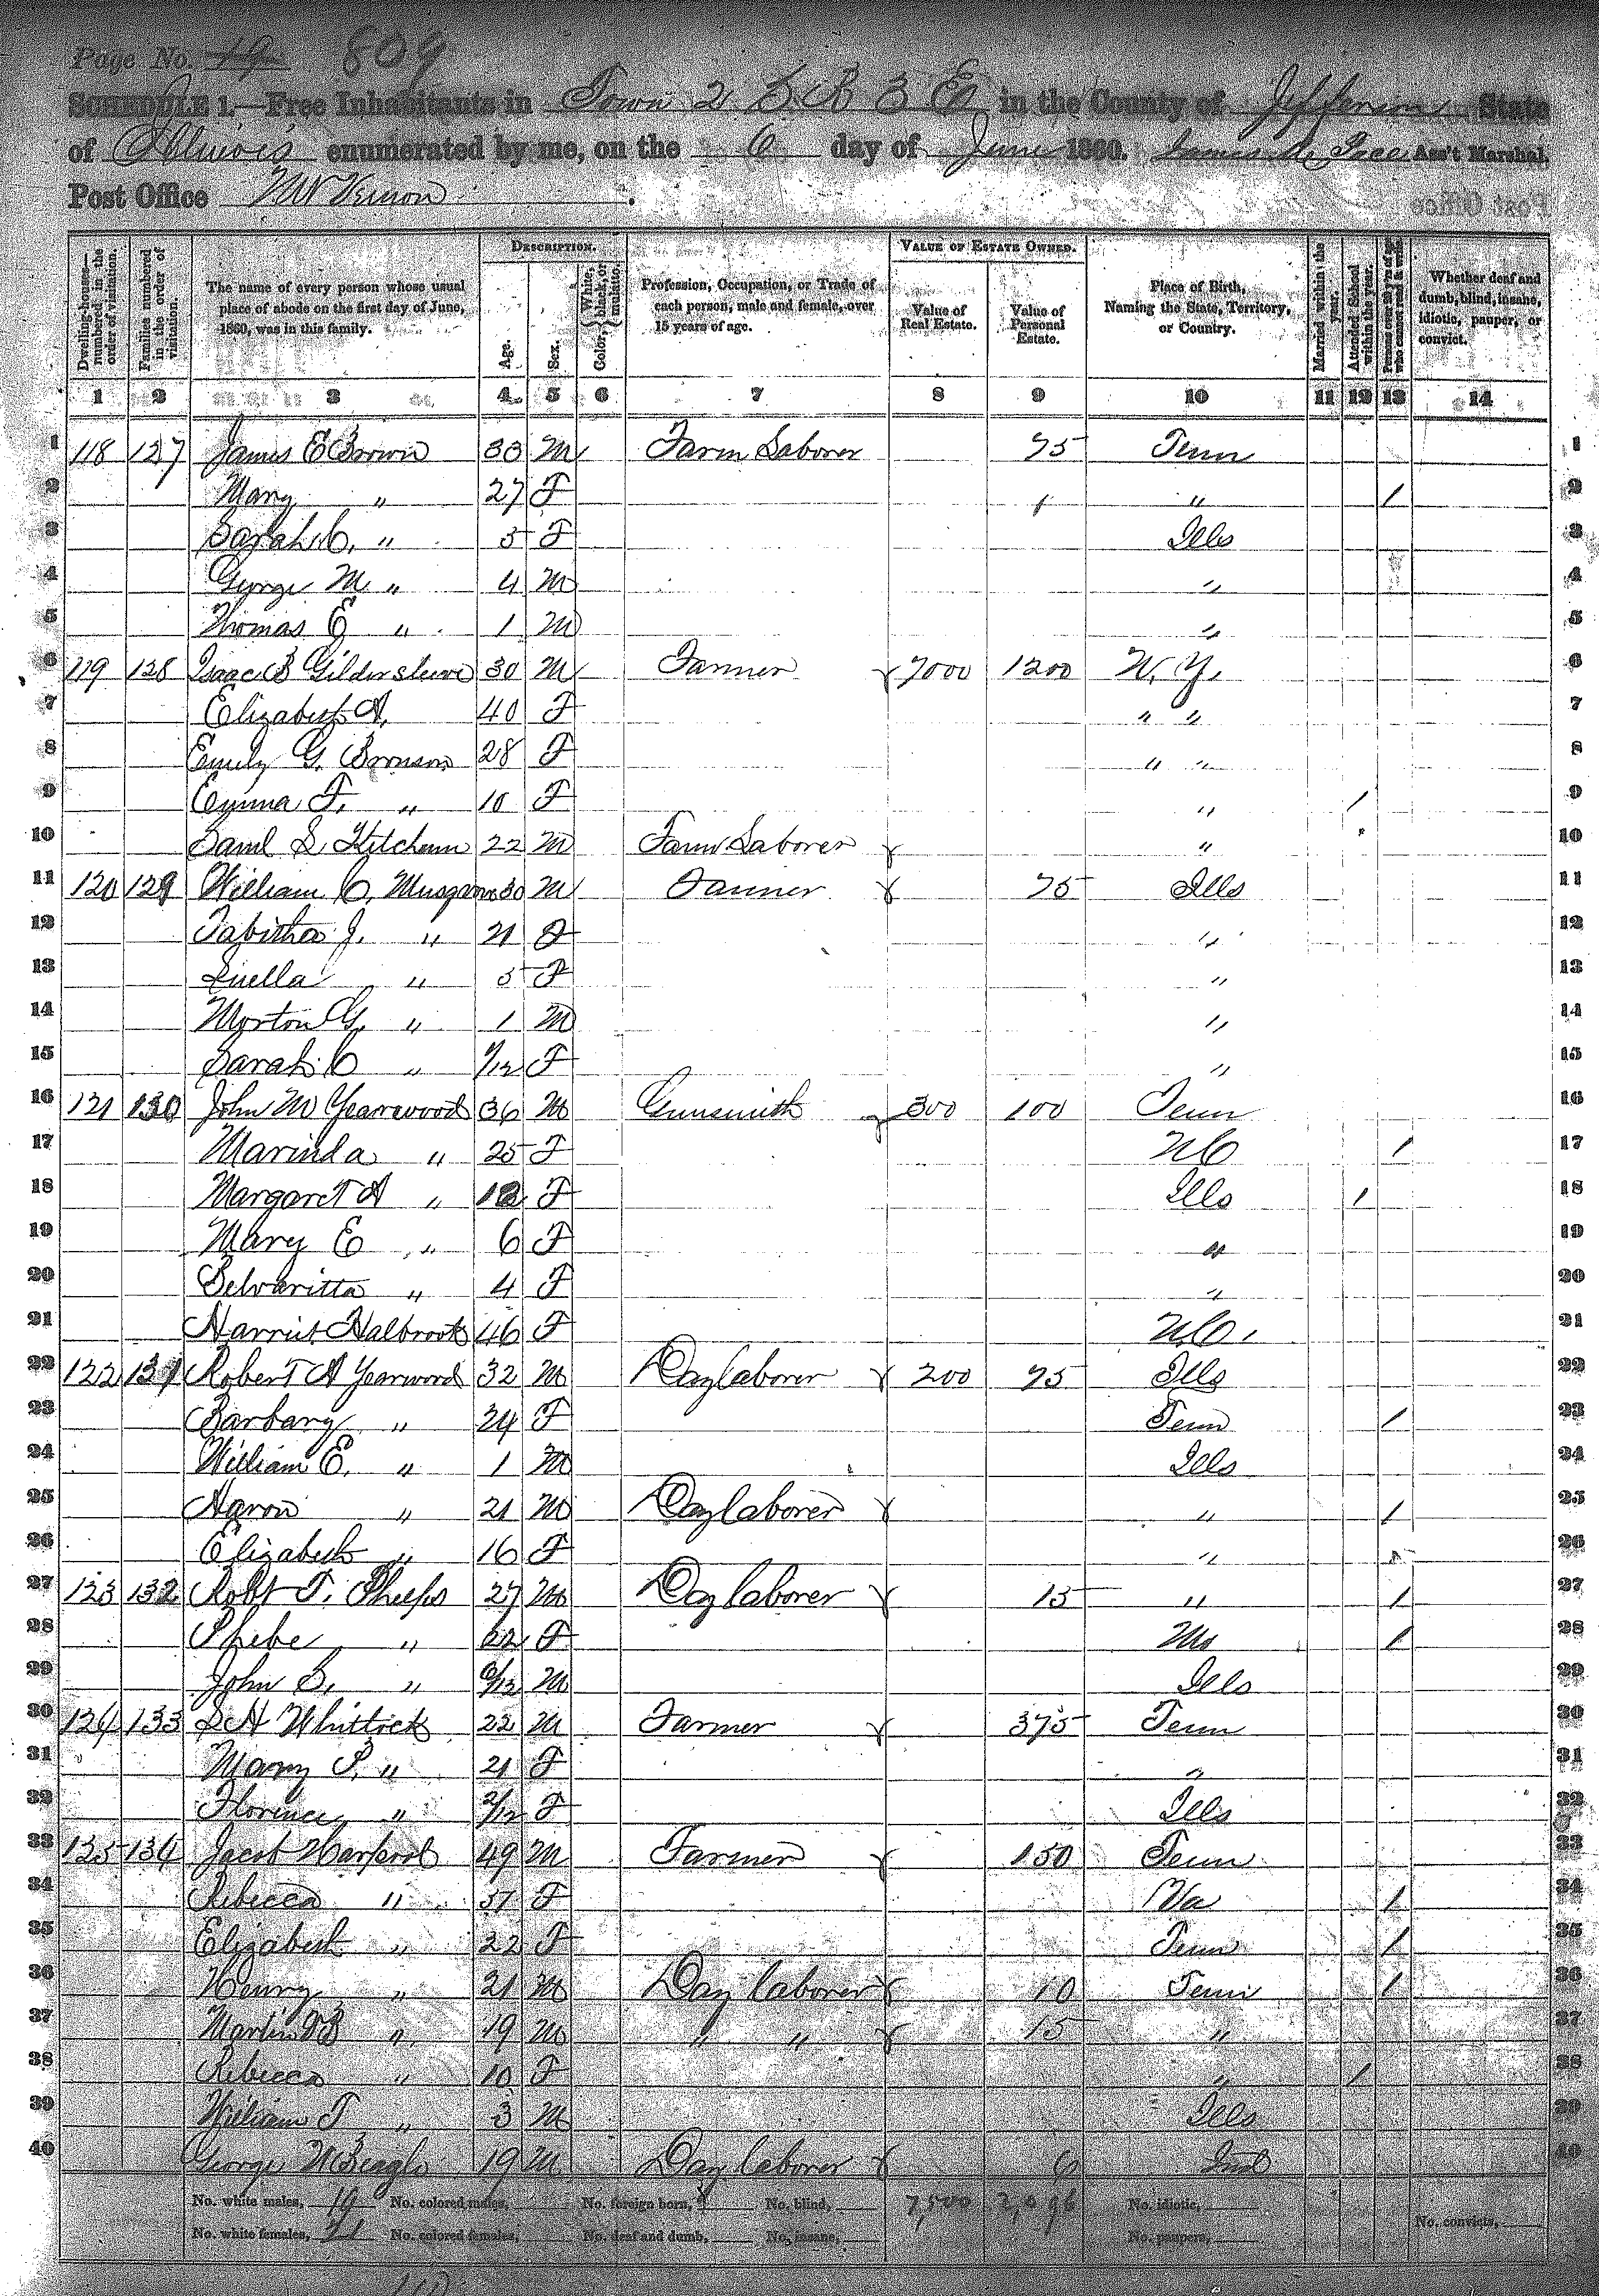 Page No. 809
SCHEDULE 1.—Free Inhabitants in Town 2 S R 3 E in the County of Jefferson State
of Illinois enumerated by me, on the 6 day of June 1860. James Ass't Marshal.
Post Office Mt Vernon.
DESCRIPTION. VALUE OF ESTATE OWNED.
Dwelling-houses—numbered in the order of visitation. Families numbered in the order of visitation. The name of every person whose usual place of abode on the first day of June, 1860, was in this family. Age. Sex. Color, {White, black, or mulatto. Profession, Occupation, or Trade of each person, male and female, over 15 years of age. Value of Real Estate. Value of Personal Estate. Place of Birth, Naming the State, Territory, or Country. Married within the year. Attended School within the year. Persons over 20 y'rs of age who cannot read & write. Whether deaf and dumb, blind, insane, idiotic, pauper, or convict.
1 2 3 4 5 6 7 8 9 10 11 12 13 14
1 118 127 James E Brown 33 M Farm Laborer 75 Tenn 1
2 Mary " 27 F " / 2
3 Sarah C. " 5 F Ills 3
4 George M " 4 M " 4
5 Thomas E " 1 M " 5
6 119 128 Isaac B Gildersleeve 30 M Farmer 7000 1200 N.Y. 6
7 Elizabeth A. 40 F " " 7
8 Emily G. Bronson 28 F " " 8
9 Emma F. " 10 F " / 9
10 Saml S. Ketcham 22 M Farm Laborer " 10
11 120 129 William C. 30 M Farmer 75 Ills 11
12 Tabitha J. " 21 F " 12
13 Luella " 5 F " 13
14 Morton G. " 1 M " 14
15 Sarah C " /12 F " 15
16 121 130 John M Yearwood 36 M Gunsmith 300 100 Tenn 16
17 Marinda " 25 F NC / 17
18 Margaret A " 12 F Ills / 18
19 Mary E " 6 F " 19
20 " 4 F " 20
21 Harriet Halbrook 46 F NC. 21
22 122 131 Robert A Yearwood 32 M Day laborer 200 75 Ills 22
23 Barbary " 24 F Tenn / 23
24 William E. " 1 M Ills 24
25 Aaron " 21 M Day laborer " / 25
26 Elizabeth " 16 F " 26
27 123 132 Robt T. Phelps 27 M Day laborer 15 " / 27
28 Phebe " 22 F Mo / 28
29 John S. " /12 M Ills 29
30 124 133 S H Whitlock 22 M Farmer 375 Tenn 30
31 Mary P. " 21 F " 31
32 Florence " 2/12 F Ills 32
33 125 134 Jacob Harpool 49 M Farmer 150 Tenn 33
34 Rebecca " 37 F Va / 34
35 Elizabeth " 22 F Tenn / 35
36 Henry " 21 M Day laborer 10 Tenn / 36
37 Martin B " 19 M " " 15 " 37
38 Rebecca " 10 F " / 38
39 William T " 3 M Ills 39
40 George W Beagle 19 M Day laborer 6 Ind 40
No. white males, 19 No. colored males, No. foreign born, No. blind, 7,500 2,096 No. idiotic,
No. white females, 21 No. colored females, No. deaf and dumb, No. insane, No. paupers, No. convicts,